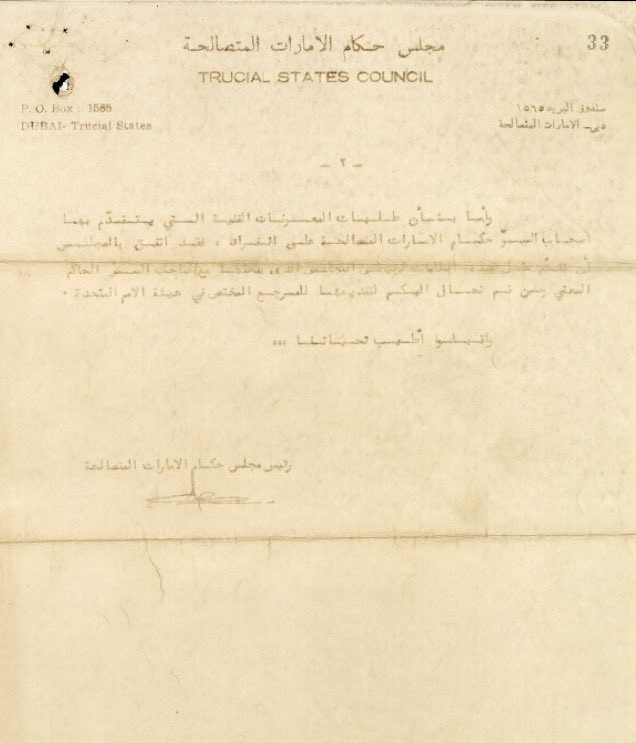 33
مجلس حكام الامارات المتصالحة
TRUCIAL STATES COUNCIL
P. O. Box : 1565
DUBAI- Trucial States
صندوق البريد ١٥٦٥
دبي - الامارات المتصالحة
- ٢ -
وأما بشأن طلبات المعونات الفنية التي يتقدّم بها
أصحاب السموّ حكام الامارات المتصالحة على انفراد ، فقد اتفق بالمجلس
أن تقدّم مثل هذه الطلبات لرئيس المجلس الذي يبحثها مع صاحب السمو الحاكم
المعني ومن ثم تحال اليكم لتقديمها للمرجع المختص في هيئة الامم المتحدة .
واقبلوا أطيب تحياتنا ،،،
رئيس مجلس حكام الامارات المتصالحة